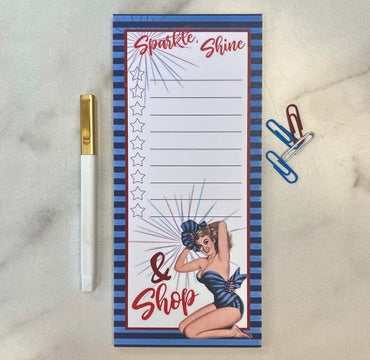 Sparkle, Shine
&
Shop